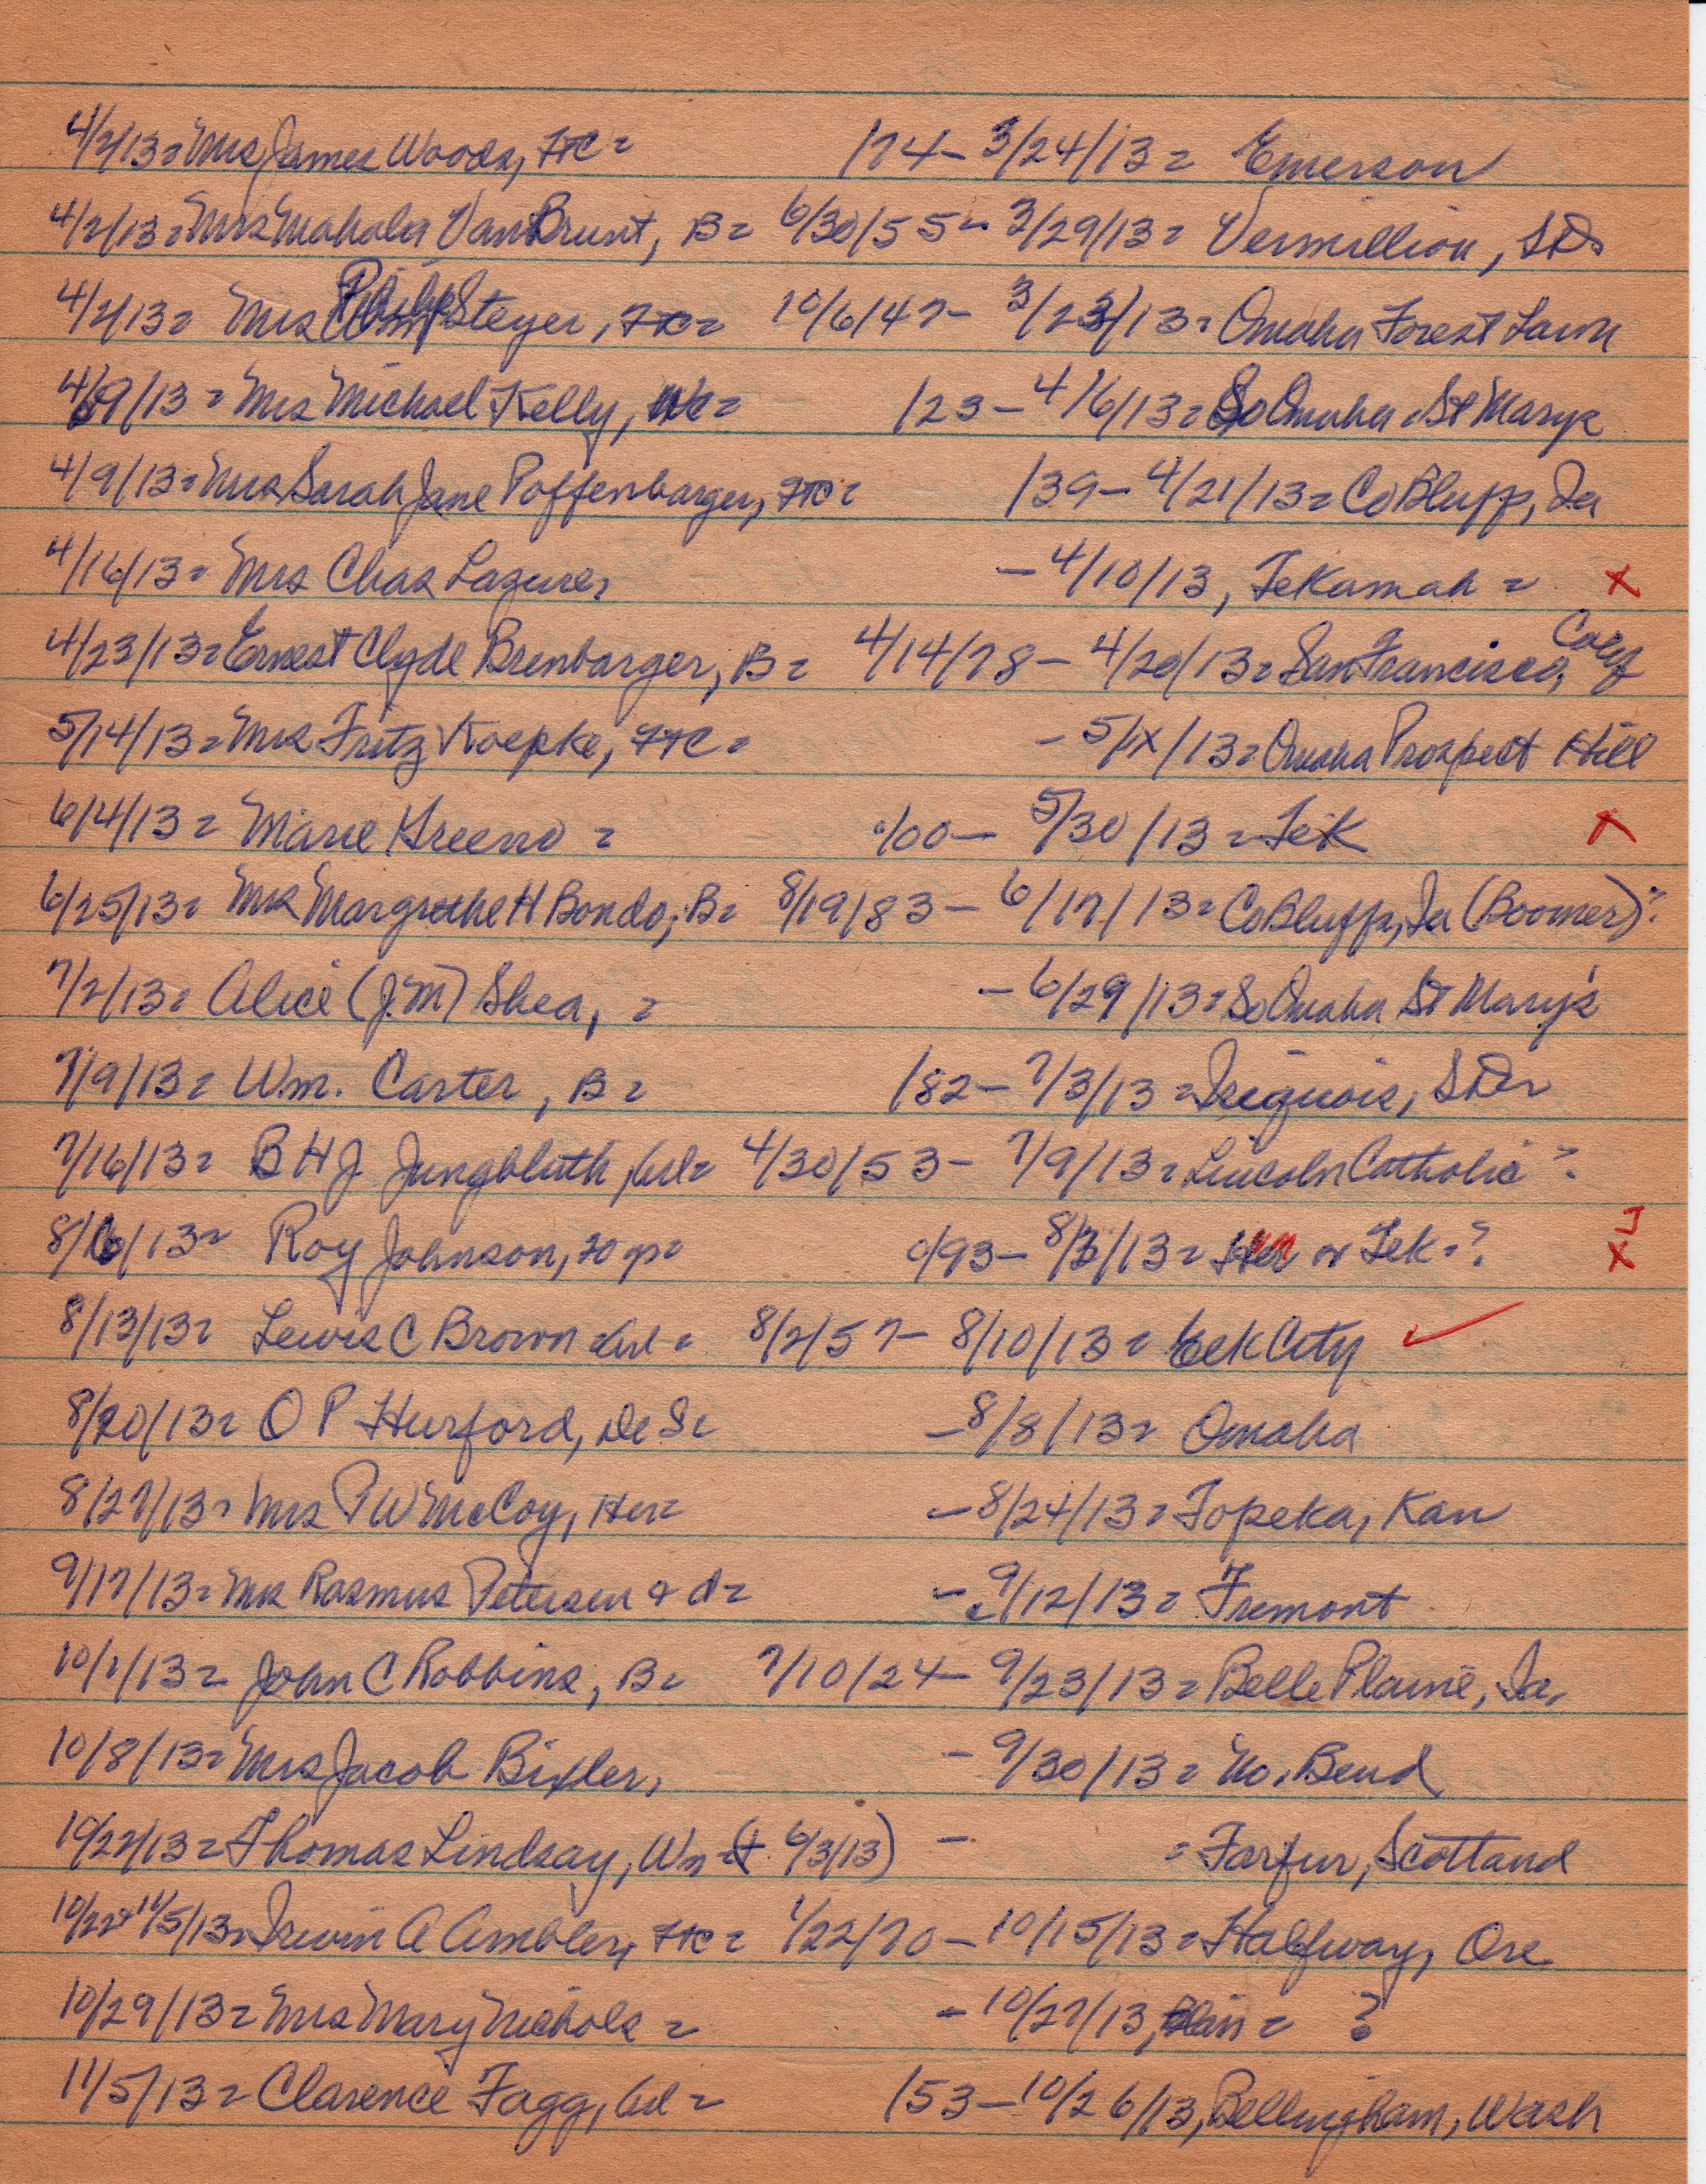 4/2/13 = Mrs James Woods, FtC = /74 - 3/24/13 = Emerson
4/2/13 = Mrs Mahala VanBrunt, B = 6/30/55 - 3/29/13 = Vermillion, SD
4/2/13 = Mrs Steyer, FtC = 10/6/47 - 3/23/13 = Omaha Forest Lawn
4/9/13 = Mrs Michael Kelly, = /23 - 4/6/13 = So Omaha St Marys
4/9/13 = Mrs Sarah Jane Poffenbarger, FtC = /39 - 4/21/13 = Co Bluff, Ia
4/16/13 = Mrs Chas Lazure, - 4/10/13, Tekamah = X
4/23/13 = Ernest Clyde Brenbarger, B = 4/14/78 - 4/20/13 = San Francisco, Calif
5/14/13 = Mrs Fritz Koepke, FtC = - 5/ /13 = Omaha Prospect Hill
6/4/13 = Marie Greeno = /00 - 5/30/13 = Tek X
6/25/13 = Mrs Margrethe H Bondo, B = 8/19/83 - 6/17/13 = Co Bluffs, Ia (Boomer)?
7/2/13 = Alice (J.M) Shea, = - 6/29/13 = So Omaha St Mary's
7/9/13 = Wm. Carter, B = /82 - 7/3/13 = Iriquois, SD
7/16/13 = B H J Jungbluth, = 4/30/53 - 7/9/13 = Lincoln Catholic?
8/6/13 = Roy Johnson, 20 yr = c/93 - 8/3/13 = Her or Tek = ? X
8/13/13 = Lewis C Brown = 8/2/57 - 8/10/13 = Elk City ✓
8/20/13 = O P Hurford, De S = - 8/8/13 = Omaha
8/27/13 = Mrs P W McCoy, Her = - 8/24/13 = Topeka, Kan
9/17/13 = Mrs Rasmus Petersen & d = - 9/12/13 = Fremont
10/1/13 = John C Robbins, B = 7/10/24 - 9/23/13 = Belle Plaine, Ia.
10/8/13 = Mrs Jacob Bixler, - 9/30/13 = No. Bend
10/22/13 = Thomas Lindsay, Wn 6/3/13) - = Farfur, Scotland
10/22 + 11/5/13 = Irwin A Ambler, FtC = 1/22/70 - 10/15/13 = Halfway, Ore
10/29/13 = Mrs Mary Nichols = - 10/27/13, Blair = ?
11/5/13 = Clarence Fagg, = /53 - 10/26/13, Bellingham, Wash